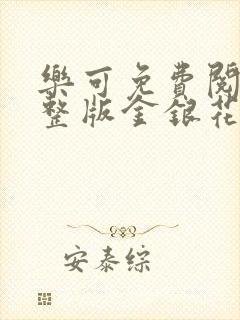 樂可免費閱
整版金銀花
安泰綜